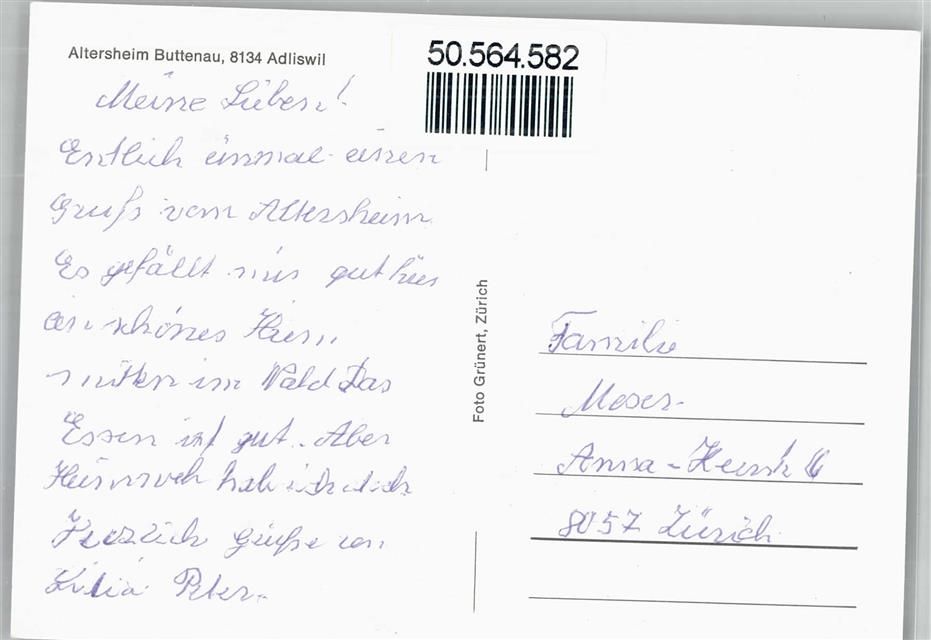 Altersheim Buttenau, 8134 Adliswil
50.564.582
Meine Lieben!
Entlich einmal einen
Gruß vom Altersheim
Es gefällt mir gut hier
ein schönes Heim
mitten im Wald Das
Essen ist gut. Aber
Heimweh hab ich doch
Herzlich Grüße von
Peter.
Foto Grünert, Zürich
Familie
Moser
8057 Zürich